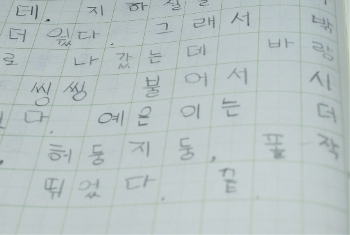 테. 지하실
더 웠다. 그래서 밖
로 나갔는데 바람
씽씽 불어서 시
다. 예은이는 더
허둥지둥, 풀짝
뛰었다. 끝.